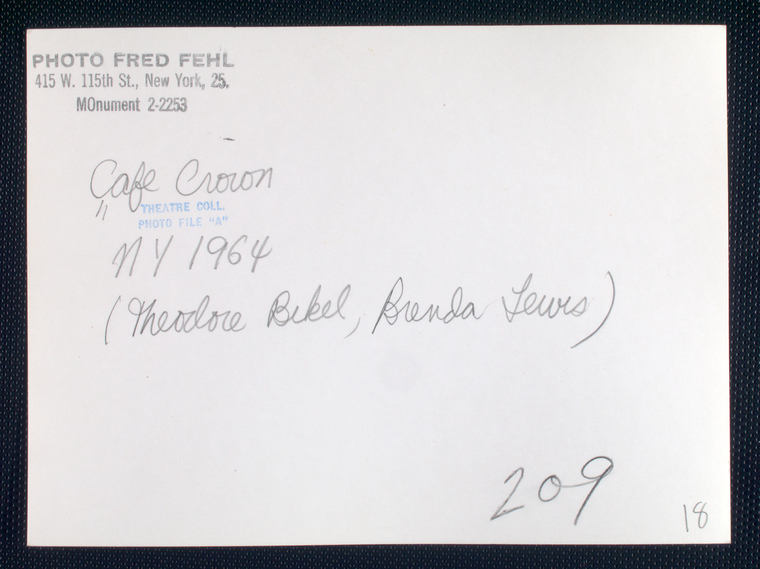 PHOTO FRED FEHL
415 W. 115th St., New York, 25.
MOnument 2-2253
Cafe Crown
"
THEATRE COLL.
PHOTO FILE "A"
NY 1964
(Theodore Bikel, Brenda Lewis)
209
18